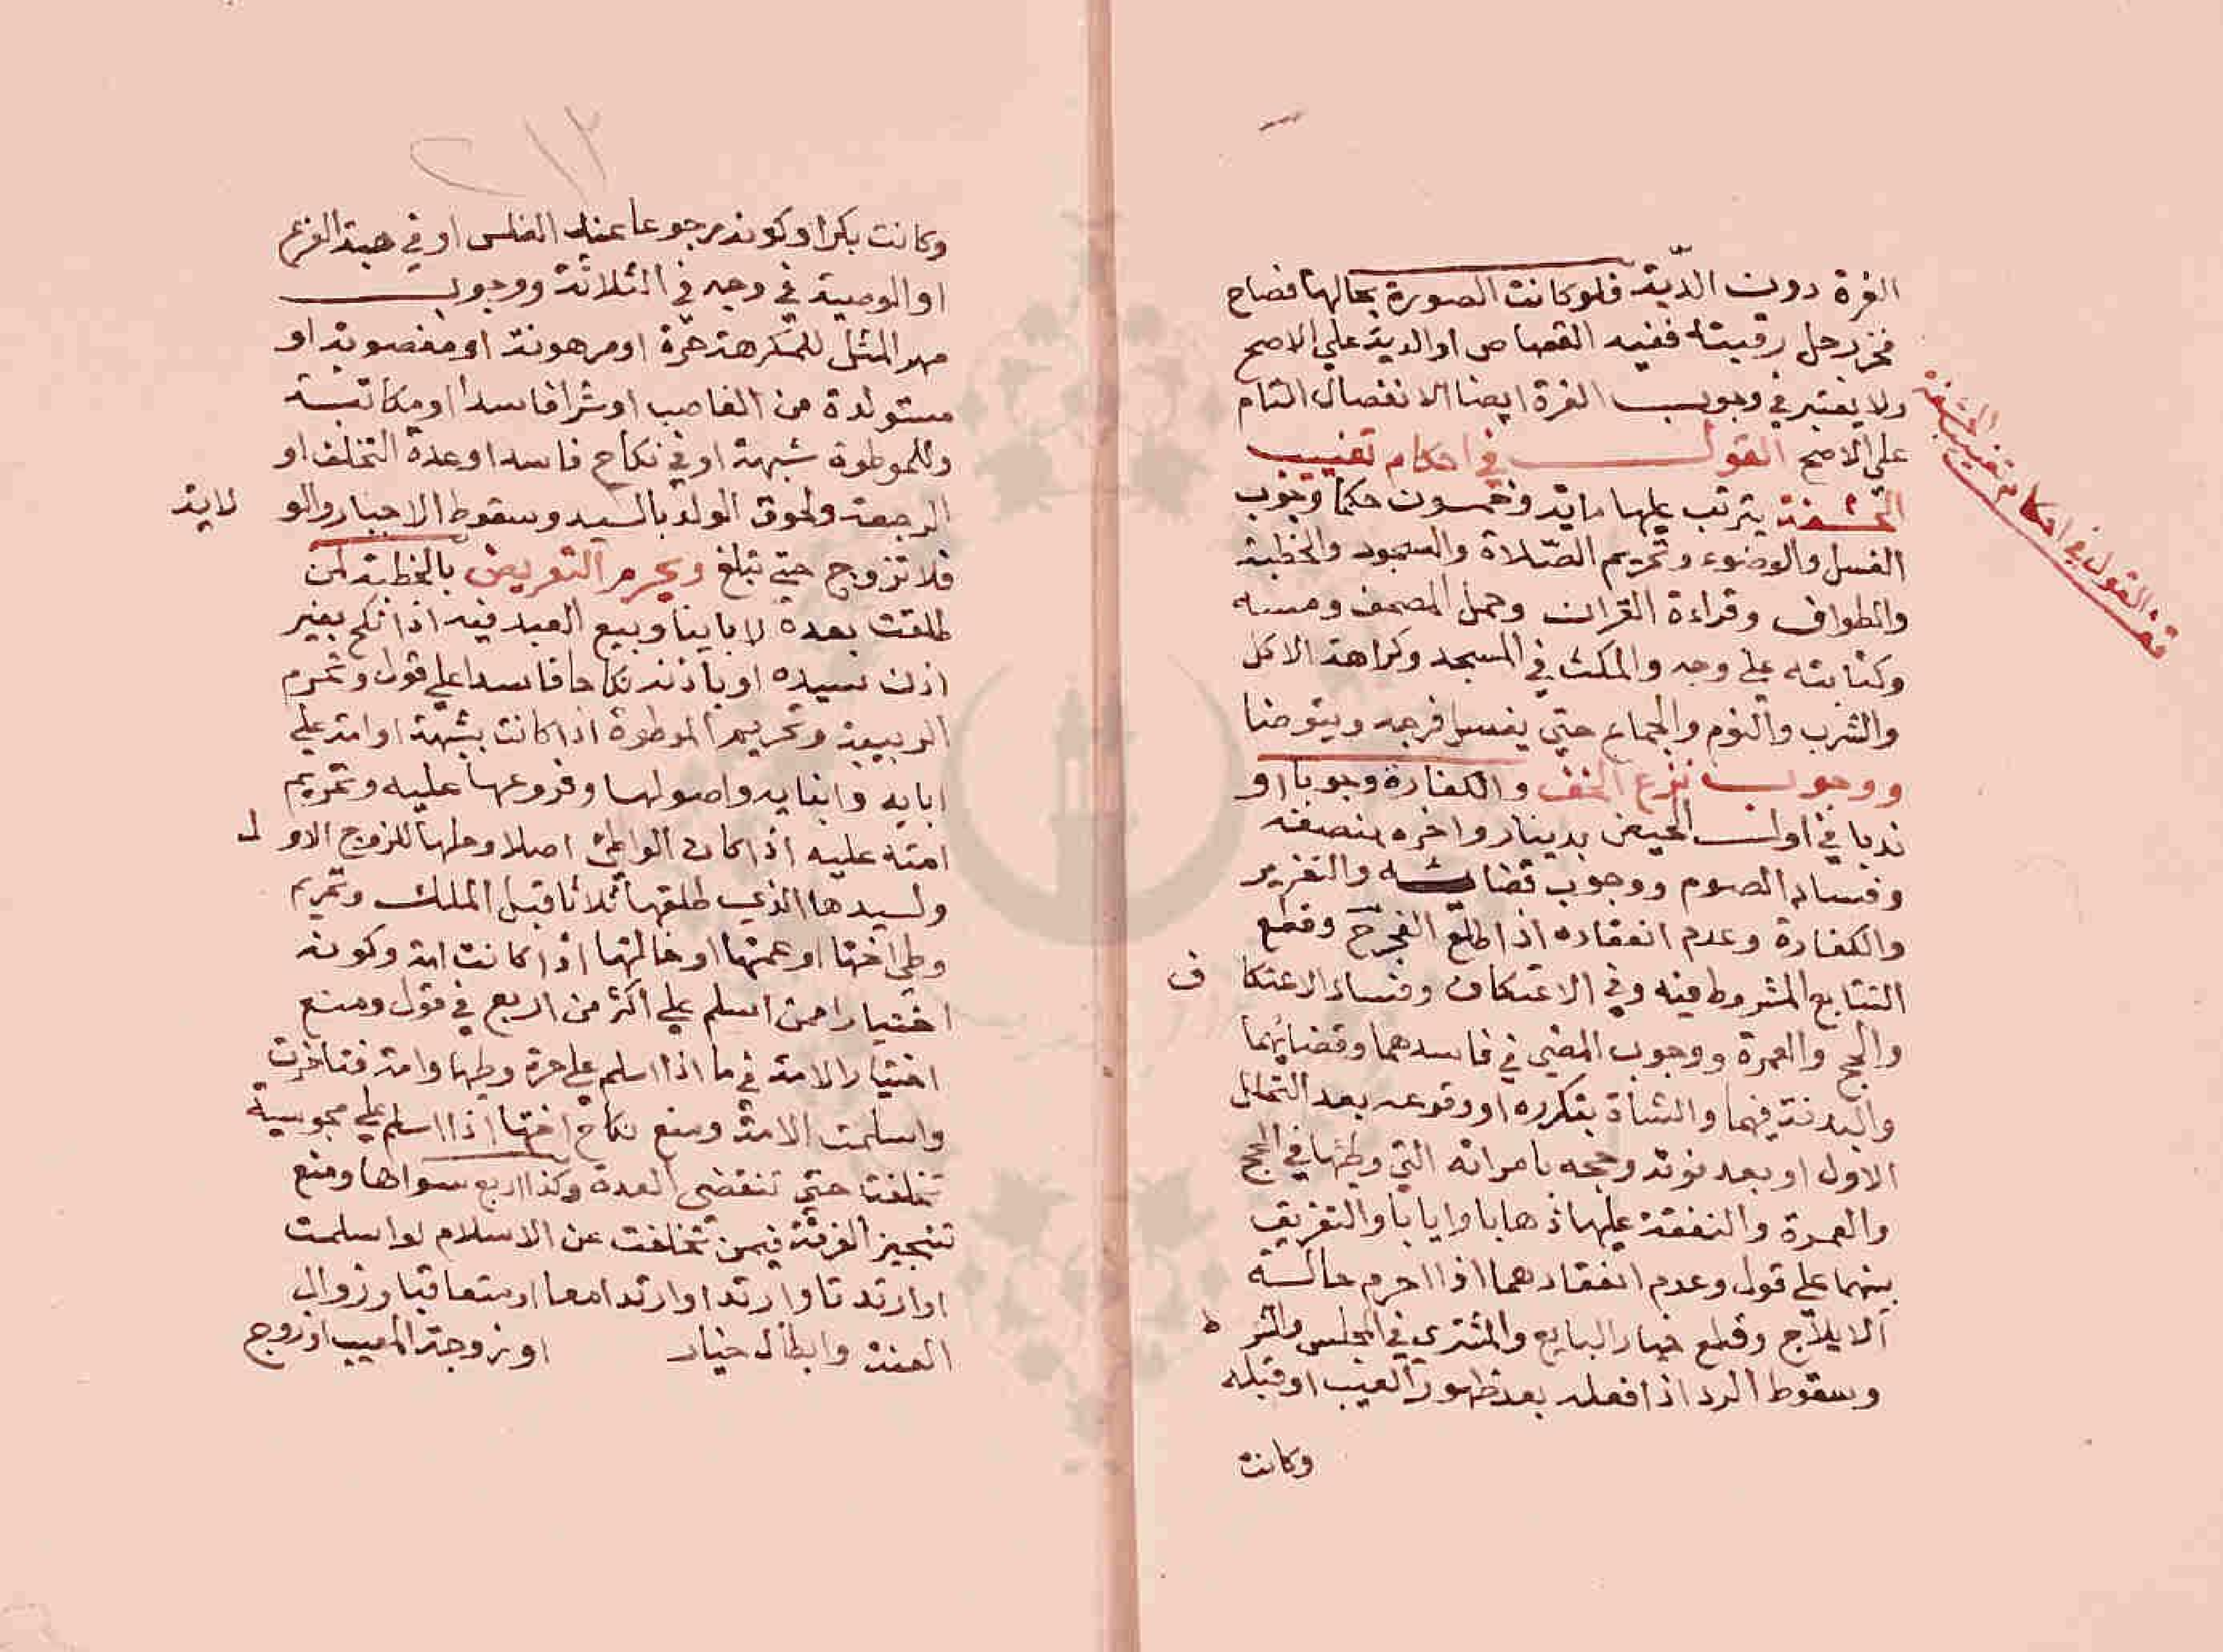 الغرة دون الدّية فلو كانت الصورة بحالها فصاح
فحز رجل رقبته ففيه القصاص او الدية على الاصح
ولا يعتبر في وجوب الغرة ايضا الانفصال التام
على الاصح القول في احكام تغييب
الحشفة يترتب عليها ماية وخمسون حكما وجوب
الغسل والوضوء وتحريم الصّلاة والسجود والخطبة
والطواف وقراءة القران وحمل المصحف ومسه
وكتابته على وجه والمكث في المسجد وكراهة الاكل
والشرب والنوم والجماع حتى يغسل فرجه ويتوضا
ووجوب نزع الخف والكفارة وجوبا او
ندبا في اول الحيض بدينار واخره بنصفه
وفساد الصوم ووجوب قضايه والتعزير
والكفارة وعدم انعقاده اذا طلع الفجر وقطع
التتابع المشروط فيه وفي الاعتكاف وفساد الاعتكا ف
والحج والعمرة ووجوب المضي في فاسدهما وقضائهما
والبدنة فيهما والشاة بتكرره او وقوعه بعد التحلل
الاول او بعد فوته وحجه بامراته التي وطئها في الحج
والعمرة والنفقة عليها ذهابا وايابا والتفريق
بينهما على قول وعدم انعقادهما اذا احرم حالة
الايلاج وقطع خيار البايع والمشتري في المجلس والشر ط
وسقوط الرد اذا فعله بعد ظهور العيب او قبله
وكانت
قف القول في احكام تغييب الحشفة
٢١٢
وكانت بكرا وكونه رجوعا عند الفلس او في هبة الفرع
او الوصية في وجه في الثلاثة ووجوب
مهر المثل للمكرهة حرة او مرهونة او مغصوبة او
مستولدة من الغاصب او شرا فاسدا او مكاتبة
وللموطوة شبهة او في نكاح فاسد او عدة التخلف او
الرجعة ولحوق الولد بالسيد وسقوط الاجبار والو لاية
فلا تزوج حتى تبلغ ويحرم التعريض بالخطبة لمن
طلقت بعده لا باينا وبيع العبد فيه اذا نكح بغير
اذن سيده او باذنه نكاحا فاسدا على قول وتحرم
الربيبة وتحريم الموطوة اذا كانت بشبهة او امة على
ابايه وابنايه واصولها وفروعها عليه وتحريم
امته عليه اذا كان الواطئ اصلا وحلها للزوج الاو ل
ولسيدها الذي طلقها ثلاثا قبل الملك وتحريم
وطي اختها او عمتها او خالتها اذا كانت امة وكونه
اختيارا ممن اسلم على اكثر من اربع في قول ومنع
اختيار الامة في ما اذا اسلم على حرة وطيها وامة فتاخرت
واسلمت الامة ومنع نكاح اختها اذا اسلم على مجوسية
تخلفت حتى تنقضي العدة وكذا اربع سواها ومنع
تنجيز الفرقة فيمن تخلفت عن الاسلام لو اسلمت
او ارتدتا وارتد او ارتدا معا او متعاقبا وزوال
العنة وابطال خيار او زوجة المعيب او زوج